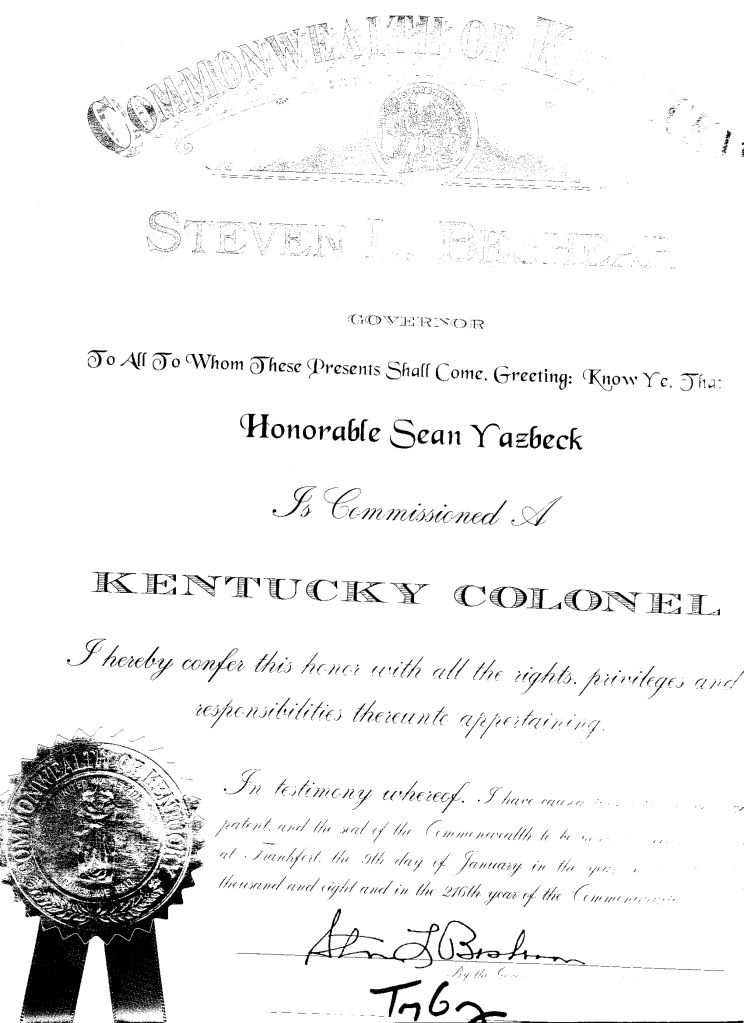 COMMONWEALTH OF
STEVEN L. BESHEAR
GOVERNOR
To All To Whom These Presents Shall Come, Greeting: Know Ye, That
Honorable Sean Yazbeck
Is Commissioned A
KENTUCKY COLONEL
I hereby confer this honor with all the rights, privileges and
responsibilities thereunto appertaining.
In testimony whereof, I have
patent, and the seal of the Commonwealth to be
at Frankfort, the 9th day of January in the year
thousand and eight and in the 216th year of the Commonwealth
COMMONWEALTH OF KENTUCKY
Steven L Beshear
By the